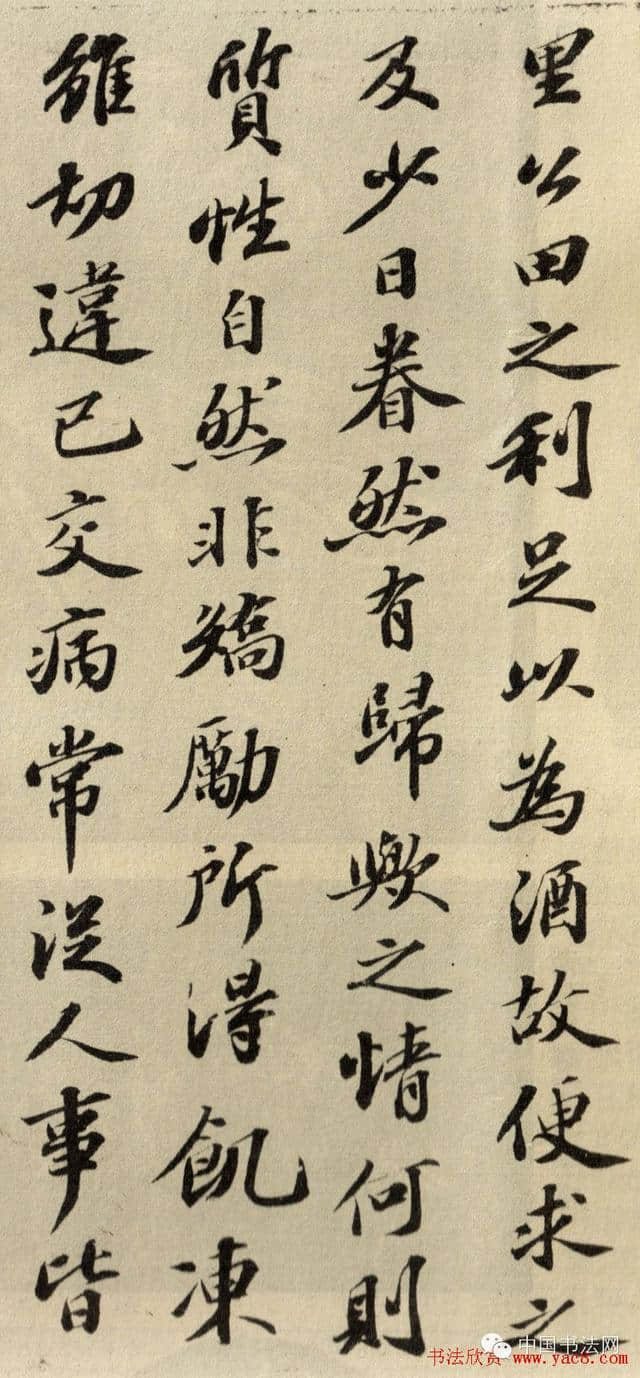 里公田之利足以為酒故便求之
及少日眷然有歸歟之情何則
質性自然非矯勵所得飢凍
雖切違己交病常從人事皆
中国书法网
书法欣赏 www.yac8.com